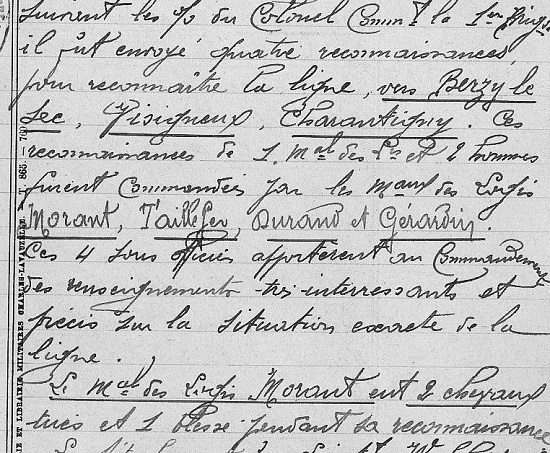 suivent les % du Colonel Commt la 1ere Brig
il fut envoyé quatre reconnaissances
pour reconnaître la ligne, vers Berzy le
Sec, Visigneux, Charantigny. Ces
reconnaissances de 1 Mal des Lis et 2 hommes
furent Commandées par les Maux des Logis
Morant, Taillefer, Durand et Gérardin.
Ces 4 sous officiers apportèrent au Commandement
des renseignements très interressants et
précis sur la situation exacte de la
ligne.
Le Mal des Logis Morant eut 2 chevaux
tués et 1 blessé pendant sa reconnaissance
IE ET LIBRAIRIE MILITAIRES CHARLES-LAVAUZELLE
865. — 70